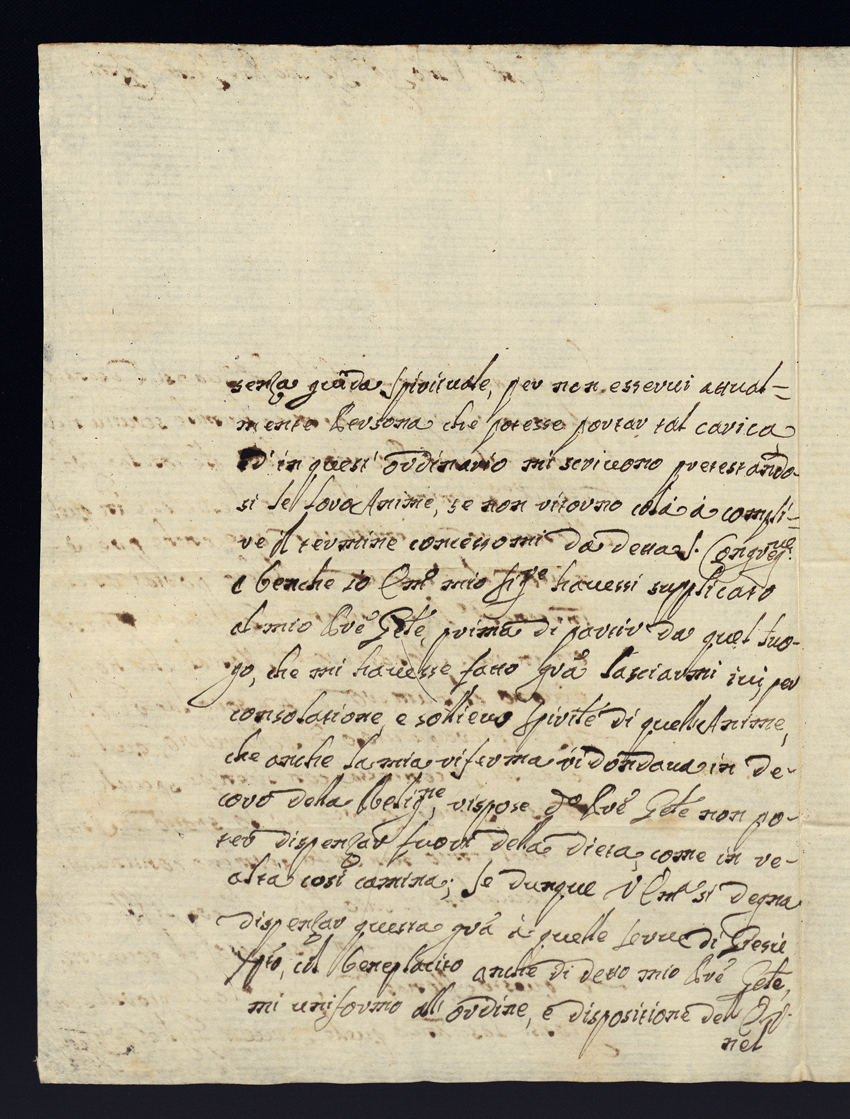 senza guida Spirituale, per non esservi attual=
mente Persona che potesse portar tal carica
Ed' in quest' ordinario mi scrivono protestando
si dell loro Anime, se non ritorno colà à compli=
re il termine concessomi da detta S. Congreg.ne
e benche io Em.o mio Sig.re havessi supplicato
al mio Pre Gnle, prima di partir da quel luo-
go, che mi havesse fatto grã lasciarmi ivi per
consolatione, e sollievo spirite di quelle Anime,
che anche la mia riferma vi dondava in de-
coro della Relig.ne, rispose d.o Pre Gnle non po-
ter dispenzar fuori della dieta, come in re-
alta così camina; Se dunque V Em.a si degna
dispenzar questa grã à quelle serve di Giesù
Xpto, col beneplacito anche di detto mio Pre Gnle,
mi uniformo all' ordine, e dispositione dell'
nel